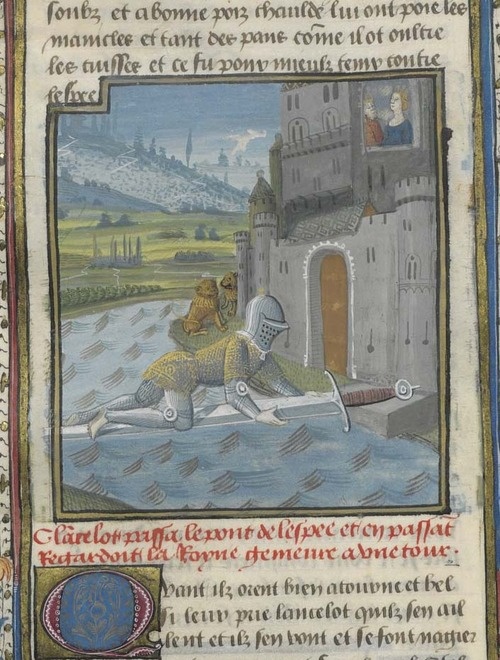 soubz et a bonne poix chaulde lui ont poié les
manicles et tant des pans cōme il ot oultre
les cuisses et ce fu pour mieulx tenir contre
lespee
Cy lācelot passa le pont de lespee et en passāt
Regardoit la Royne genieure a une tour.
Quant ilz orent bien atourne et bel
Si leur prie lancelot quilz sen ail
lent et ilz sen vont et se font nagier